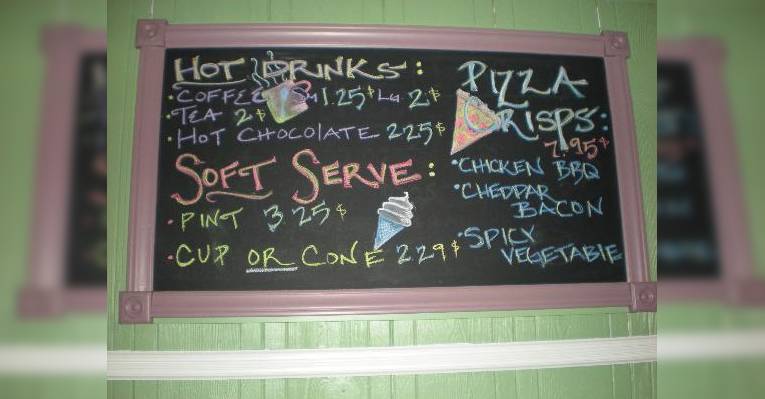 HOT DRINKS:
• COFFEE Sm 1.25$ LG. 2$
• TEA 2$
• HOT CHOCOLATE 225$
SOFT SERVE:
• PINT 3.25$
• CUP OR CONE 229$
PIZZA
CRISPS:
7.95$
• CHICKEN BBQ
• CHEDDAR
BACON
• SPICY
VEGETABLE